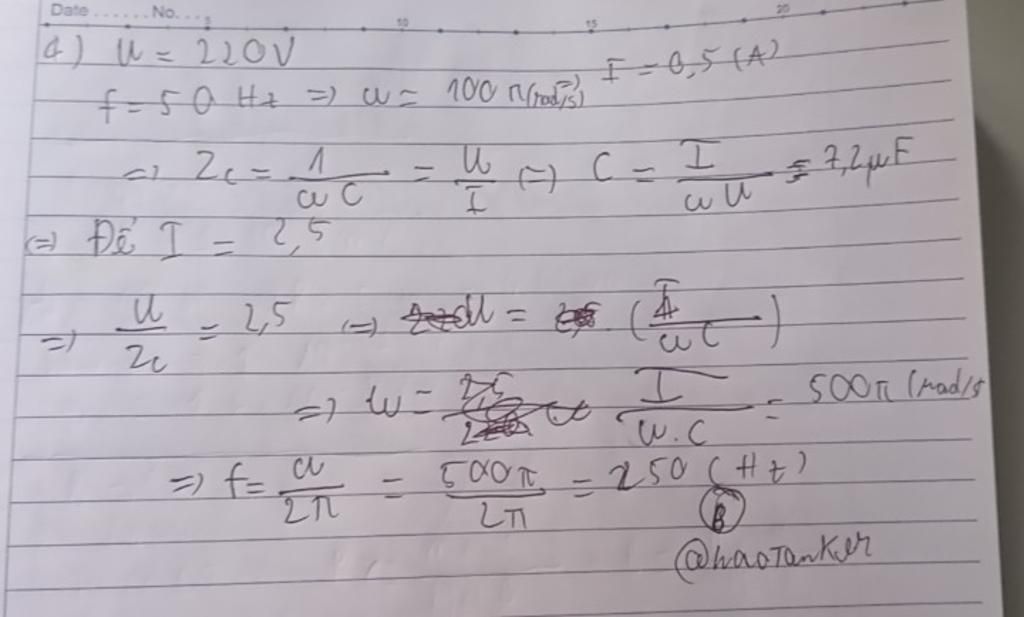 Date ...... No. ... 5 10 15 20
4) U = 220V
f = 50 Hz => ω = 100π(rad/s) I = 0,5 (A)
=> Zc = 1/ωC = U/I (=) C = I/ωU = 7,2μF
(=) Để I = 2,5
=> U/Zc = 2,5 (=) U = (I/ωC)
=> ω = I/U.C = 500π (rad/s
=> f = ω/2π = 500π/2π = 250 (Hz)
B
@haoTanker